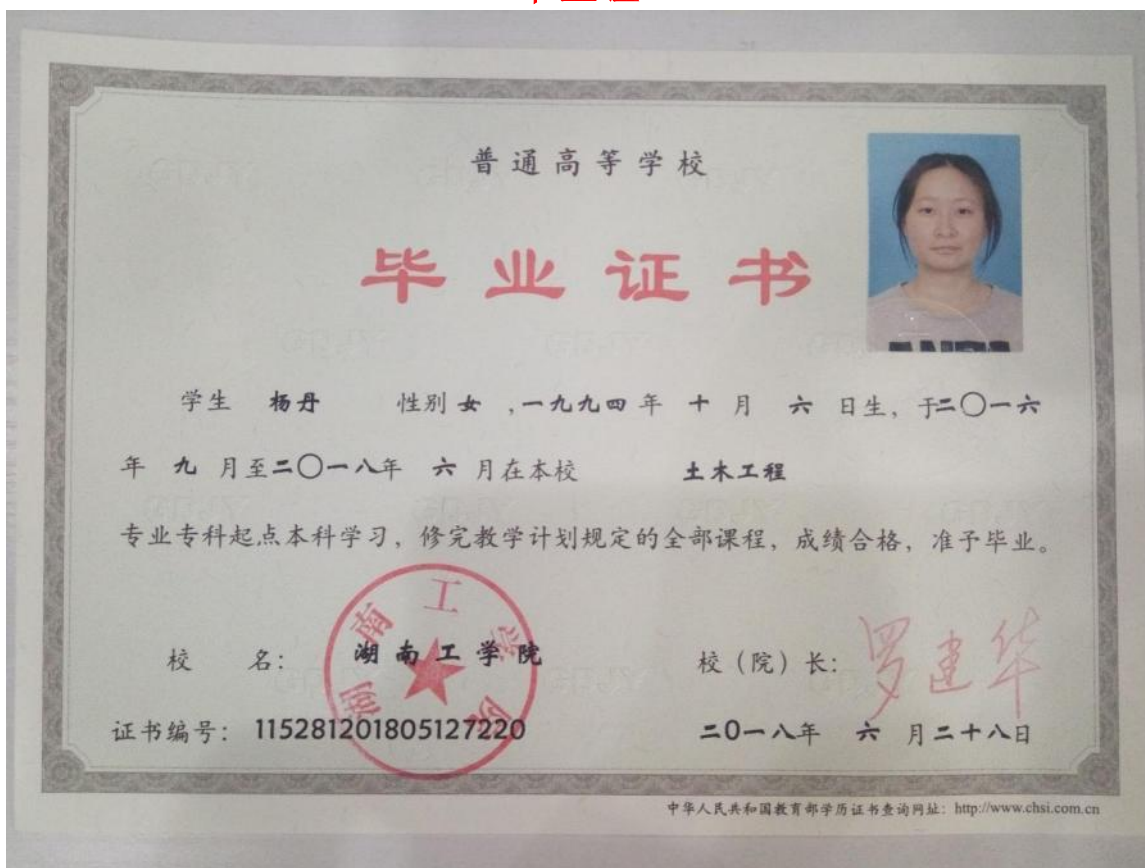 普通高等学校
毕业证书
学生 杨丹 性别 女 ,一九九四 年 十 月 六 日生, 于二〇一六
年 九 月至二〇一八年 六 月在本校 土木工程
专业专科起点本科学习, 修完教学计划规定的全部课程, 成绩合格, 准予毕业。
湖南工学院
校 名: 湖南工学院 校(院)长: 罗建华
证书编号: 115281201805127220 二0一八年 六 月二十八日
中华人民共和国教育部学历证书查询网址: http://www.chsi.com.cn